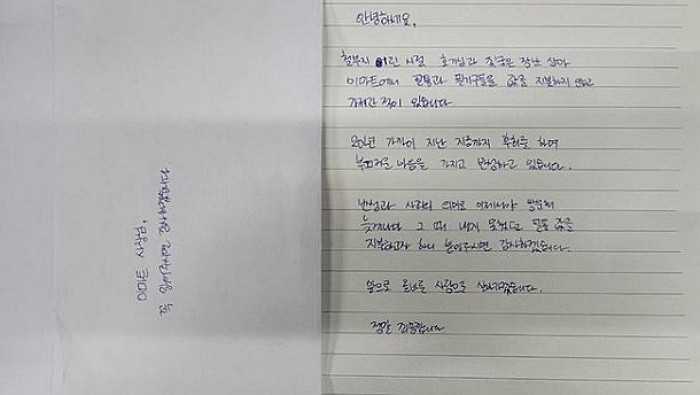 이마트 사장님,
꼭
안녕하세요,
철부지 어린 시절 호기심과 짓궂은 장난 삼아
이마트에서 필통과 필기구들을 값을 지불하지 않고
가져간 적이 있습니다
20년 가까이 지난 지금까지 후회를 하며
부끄러운 마음을 가지고 반성하고 있습니다.
반성과 사죄의 의미로 이제서야 방문해
늦게나마 그 때 내지 못했던 필통 값을
지불하고자 하니 받아주시면 감사하겠습니다.
앞으로 올바른 사람으로 살아가겠습니다.
정말 죄송합니다